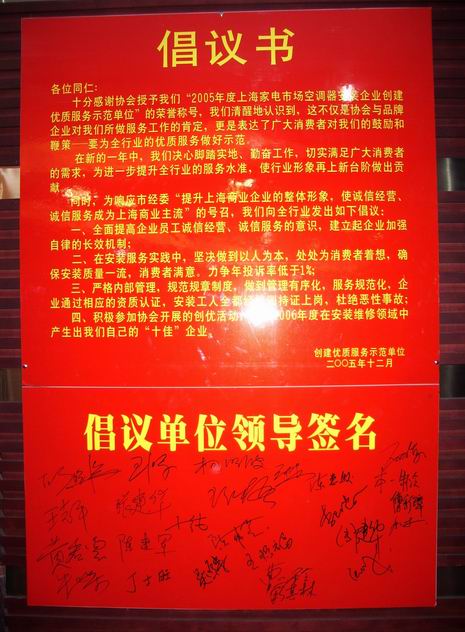 倡议书
各位同仁:
十分感谢协会授予我们“2005年度上海家电市场空调器安装企业创建
优质服务示范单位”的荣誉称号,我们清醒地认识到,这不仅是协会与品牌
企业对我们所做服务工作的肯定,更是表达了广大消费者对我们的鼓励和
鞭策——要为全行业的优质服务做好示范。
在新的一年中,我们决心脚踏实地、勤奋工作,切实满足广大消费者
的需求,为进一步提升全行业的服务水准,使行业形象再上新台阶做出贡
献。
同时,为响应市经委“提升上海商业企业的整体形象,使诚信经营、
诚信服务成为上海商业主流”的号召,我们向全行业发出如下倡议:
一、全面提高企业员工诚信经营、诚信服务的意识,建立起企业加强
自律的长效机制;
二、在安装服务实践中,坚决做到以人为本,处处为消费者着想,确
保安装质量一流,消费者满意。力争年投诉率低于1%;
三、严格内部管理,规范规章制度,做到管理有序化,服务规范化,企
业通过相应的资质认证,安装工人全都经 持证上岗,杜绝恶性事故;
四、积极参加协会开展的创优活动, 2006年度在安装维修领域中
产生出我们自己的“十佳”企业。
创建优质服务示范单位
二〇〇五年十二月
倡议单位领导签名
陈建军
丁士旺